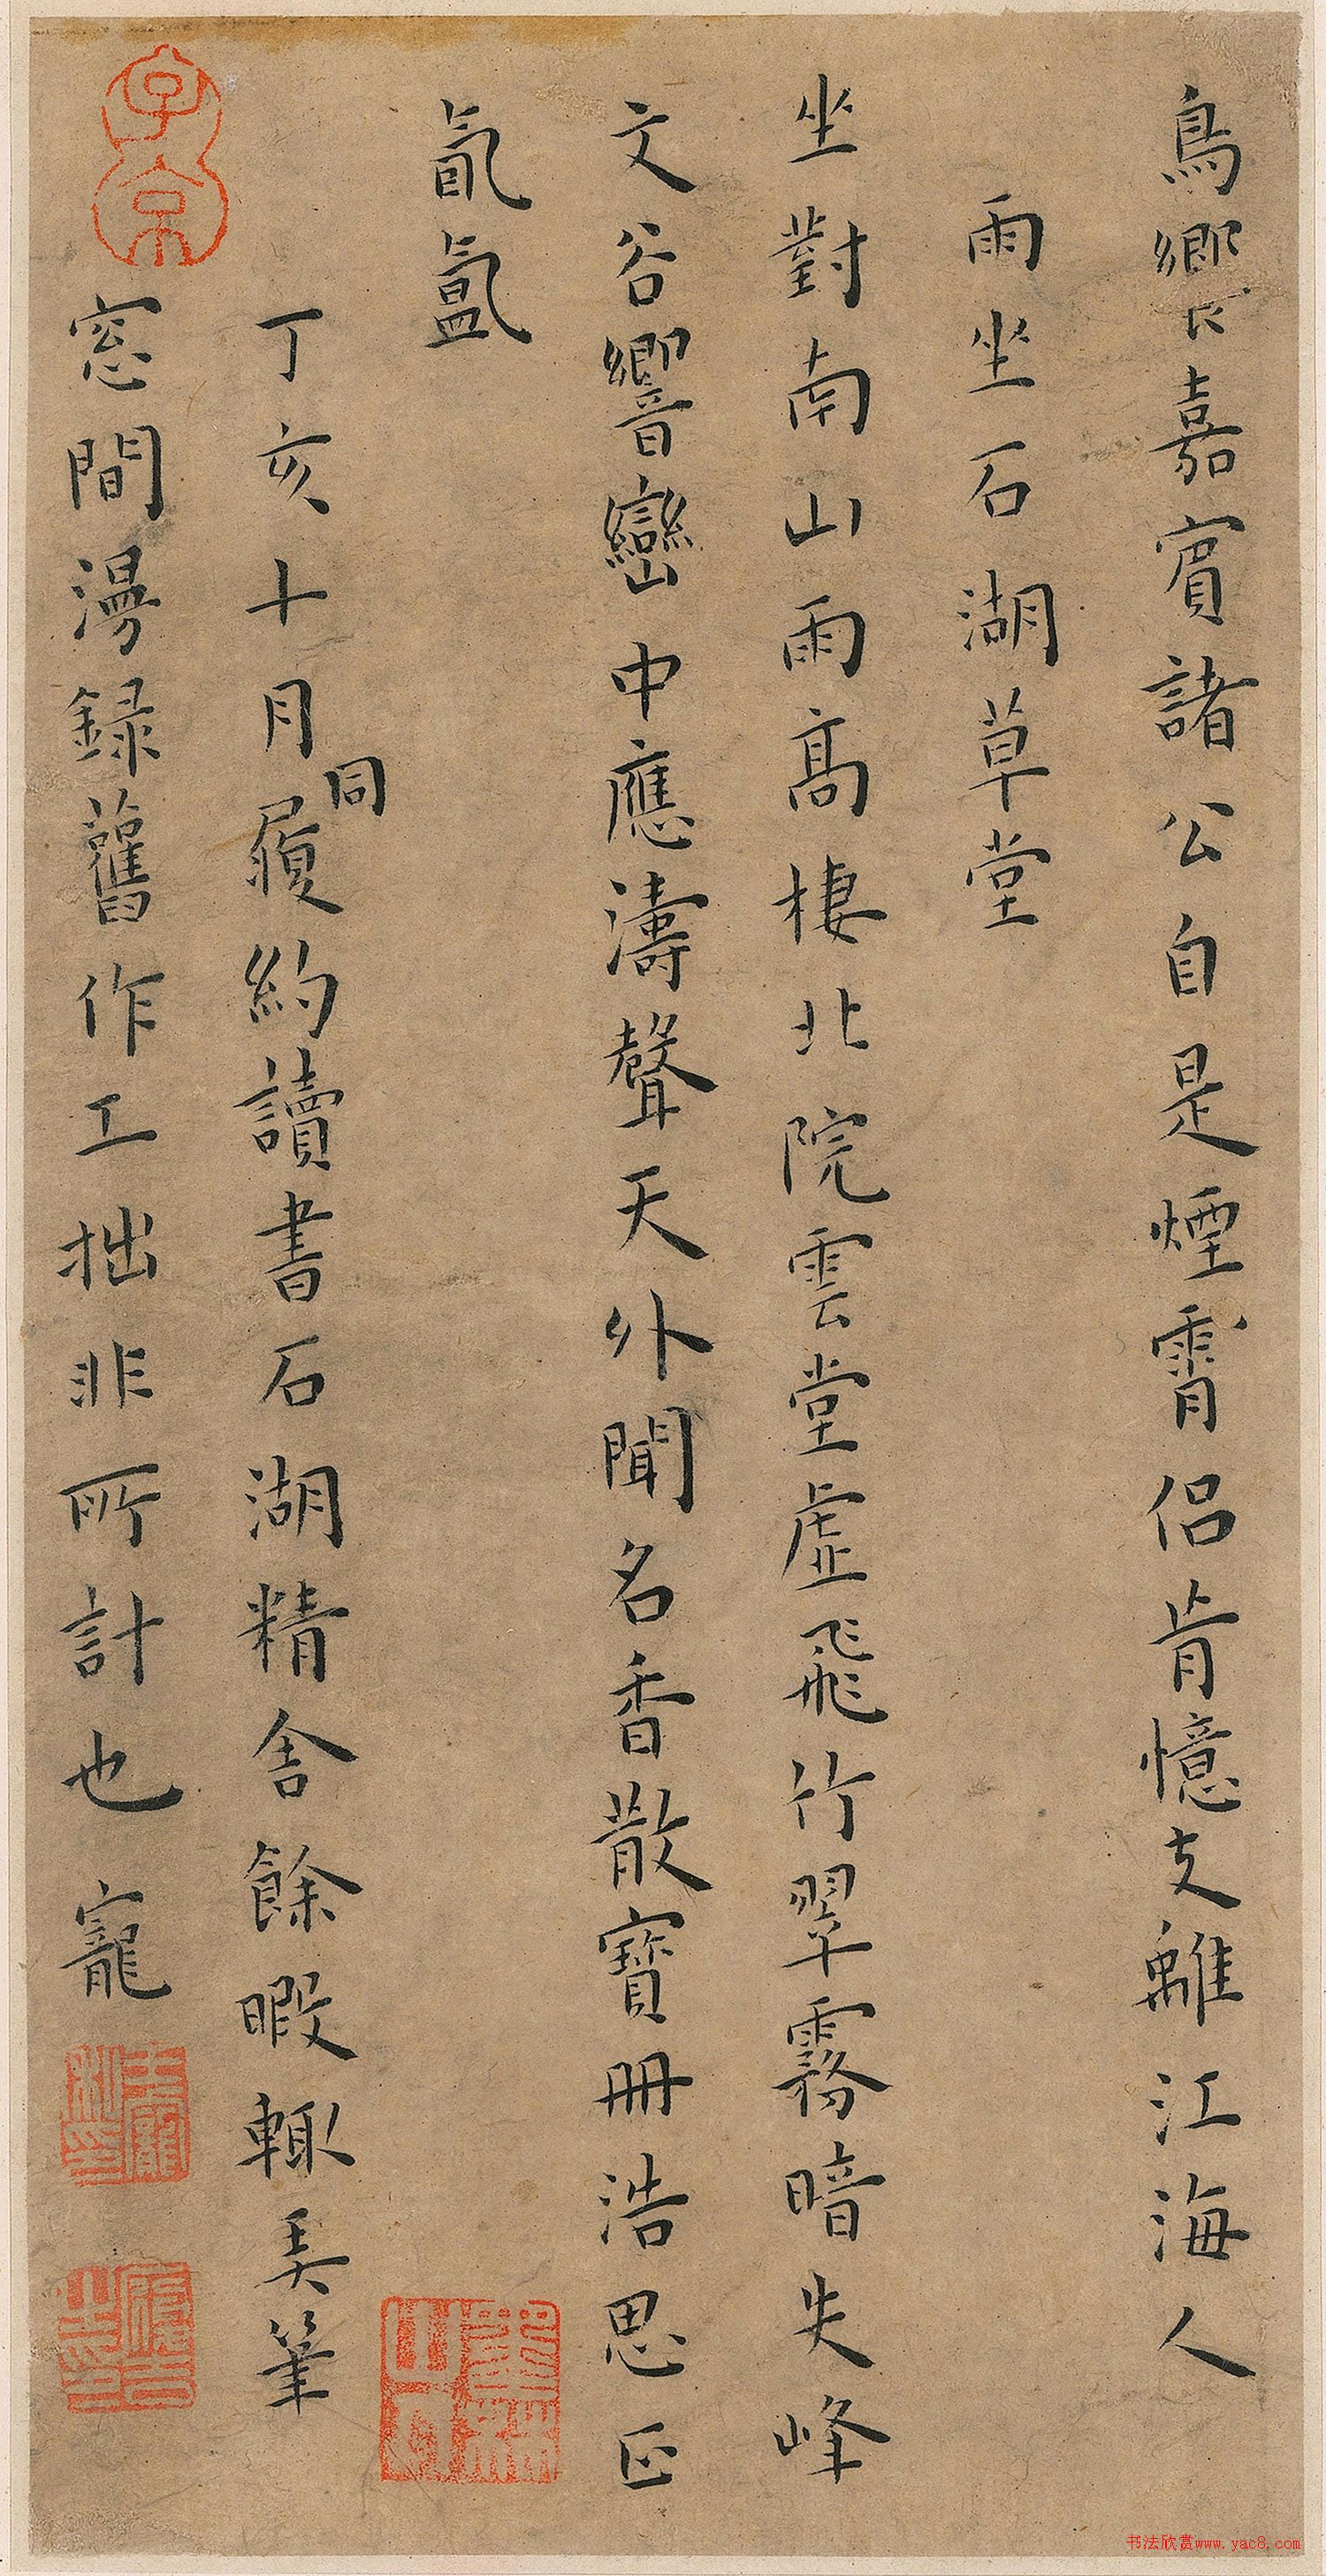 鳥鄉食嘉賓諸公自是煙霄侶肯憶支離江海人
雨坐石湖草堂
坐對南山雨高棲北院雲堂虛飛竹翠霧暗失峰
文谷響巒中應濤聲天外聞名香散寶冊浩思正
氤氳
丁亥十月同履約讀書石湖精舍餘暇輙弄筆
窓間漫録舊作工拙非所計也寵
書法欣赏www.yac8.com